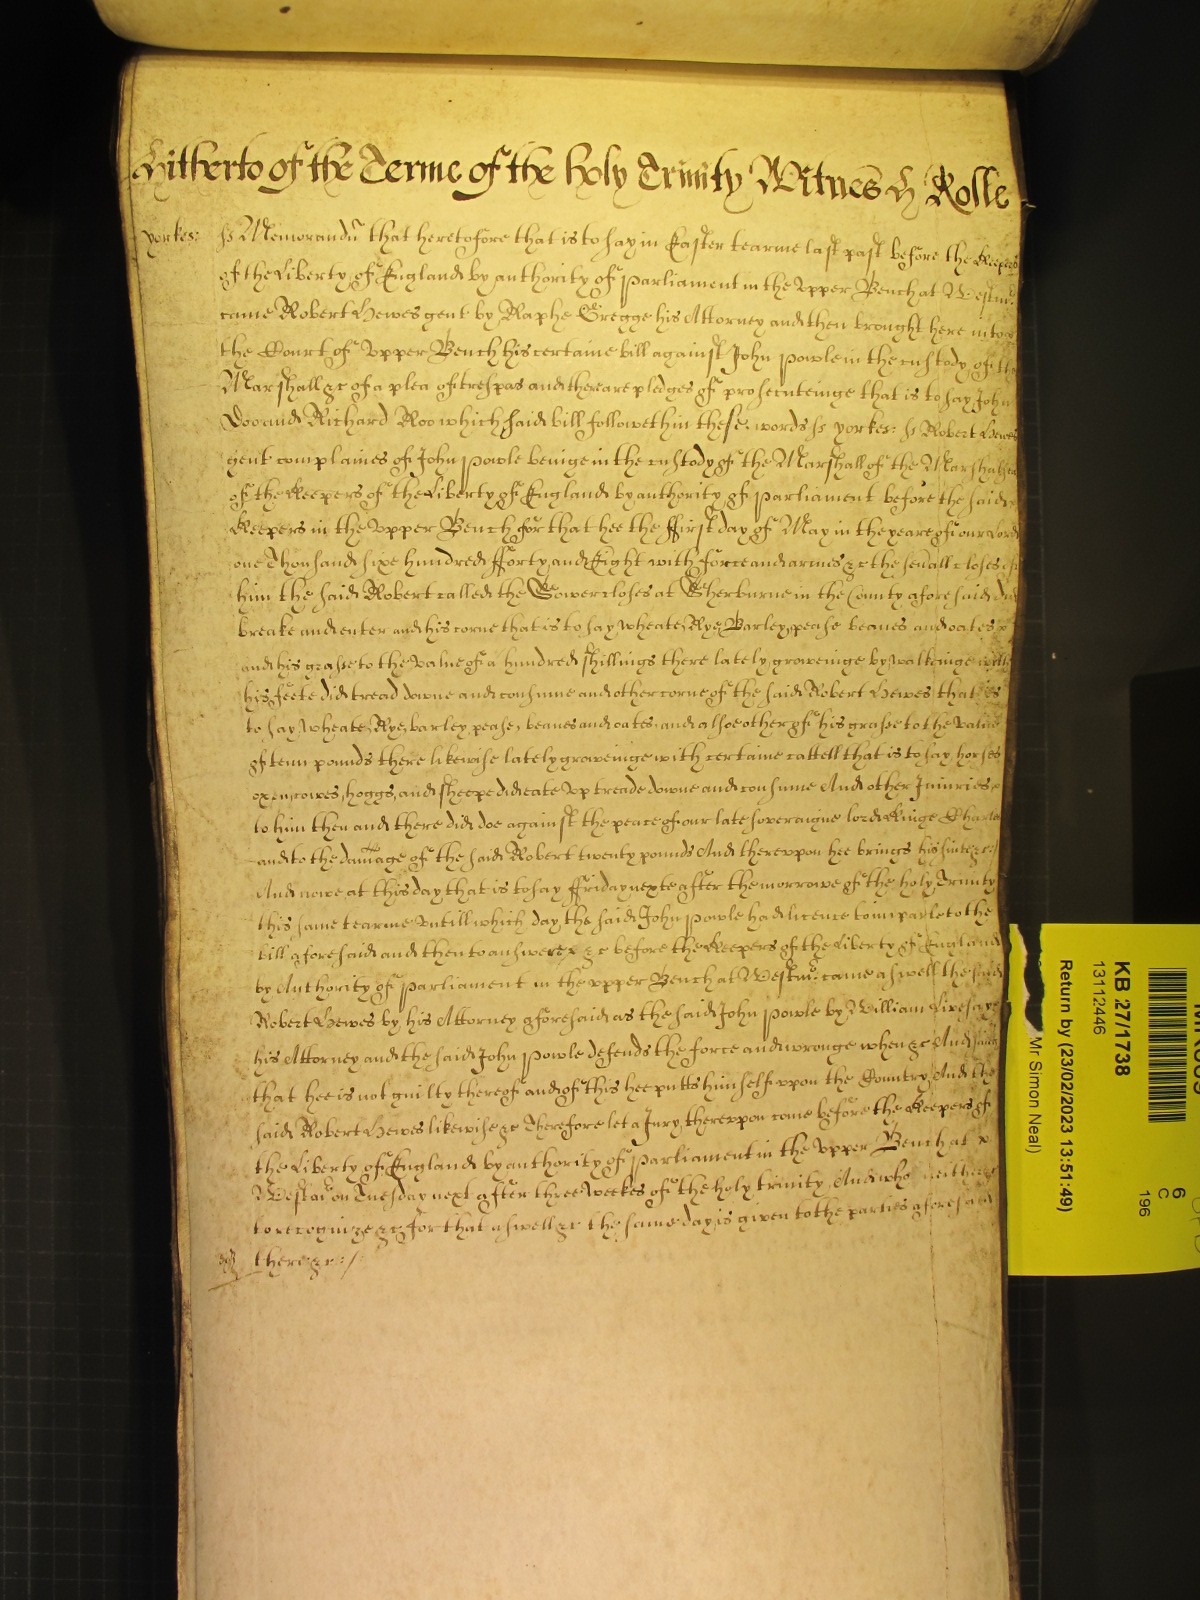 Hitherto of the Terme of the holy Trinity Witnes H Rolle
yorkes: ss Memorandu that heretofore that is to say in Easter tearme last past before the Keepers
of the Liberty of England by authority of Parliament in the Vpper Bench at Westmr
came Robert Hewes gent by Raphe Gregge his Attorney and then brought here into
the Court of Vpper Bench his certaine bill against John Powle in the custody of the
Marshall &c of a plea of trespas and there are pledges of prosecuteinge that is to say John
Doo and Richard Roo which said bill followeth in these words ss yorkes: ss Robert Hewes
gent complaines of John Powle beinge in the custody of the Marshall of the Marshalsea
of the Keepers of the Liberty of England by authority of Parliament before the said
Keepers in the Vpper Bench for that hee the ffirst day of May in the yeare of our Lord
one Thousand sixe hundred fforty and Eight with force and armes &c the seuall closes of
him the said Robert called the Gower closes at Sherburne in the County aforesaid did
breake and enter and his corne that is to say wheate, Rye, Barley, pease beanes and oates
and his grasse to the value of a hundred shillings there lately groweinge by walkeinge with
his feete did tread downe and consume and other corne of the said Robert Hewes that is
to say, wheate, Rye, barley, pease, beanes and oates and alsoe other of his grasse to the value
of tenn pounds there likewise lately groweinge with certaine cattell that is to say horses
oxen, cowes, hoggs, and sheepe did eate vp treade downe and consume And other Iniuries
to him then and there did doe against the peace of our late soveraigne lord Kinge Charles
and to the damage of the said Robert twenty pounds And therevpon hee brings his suite &c:/
And nowe at this day that is to say ffriday nexte after the morrowe of the holy Trinity
this same tearme vntill which day the said John Powle had licence to imparle to the
bill aforesaid and then to answere &c before the Keepers of the Liberty of England
by Authority of Parliament in the vpper Bench at Westmr: came aswell the said
Robert Hewes by his Attorney aforesaid as the said John Powle by William Livesaye
his Attorney and the said John Powle defends the force and wronge when &c And saith
that hee is not guilty thereof and of this hee putts himself vpon the Country, And the
said Robert Hewes likewise &c Therefore let a Jury therevpon come before the Keepers of
the Liberty of England by authority of Parliament in the Vpper Bench at
Westmr on Tuesday next after three Weekes of the holy trinity And who neither &c
to recognize &c for that aswell &c the same day is given to the parties aforesaid
there &c:/
KB 27/1738
13112446
Return by (23/02/2023 13:51:49)
Mr Simon Neal)
6
C
196